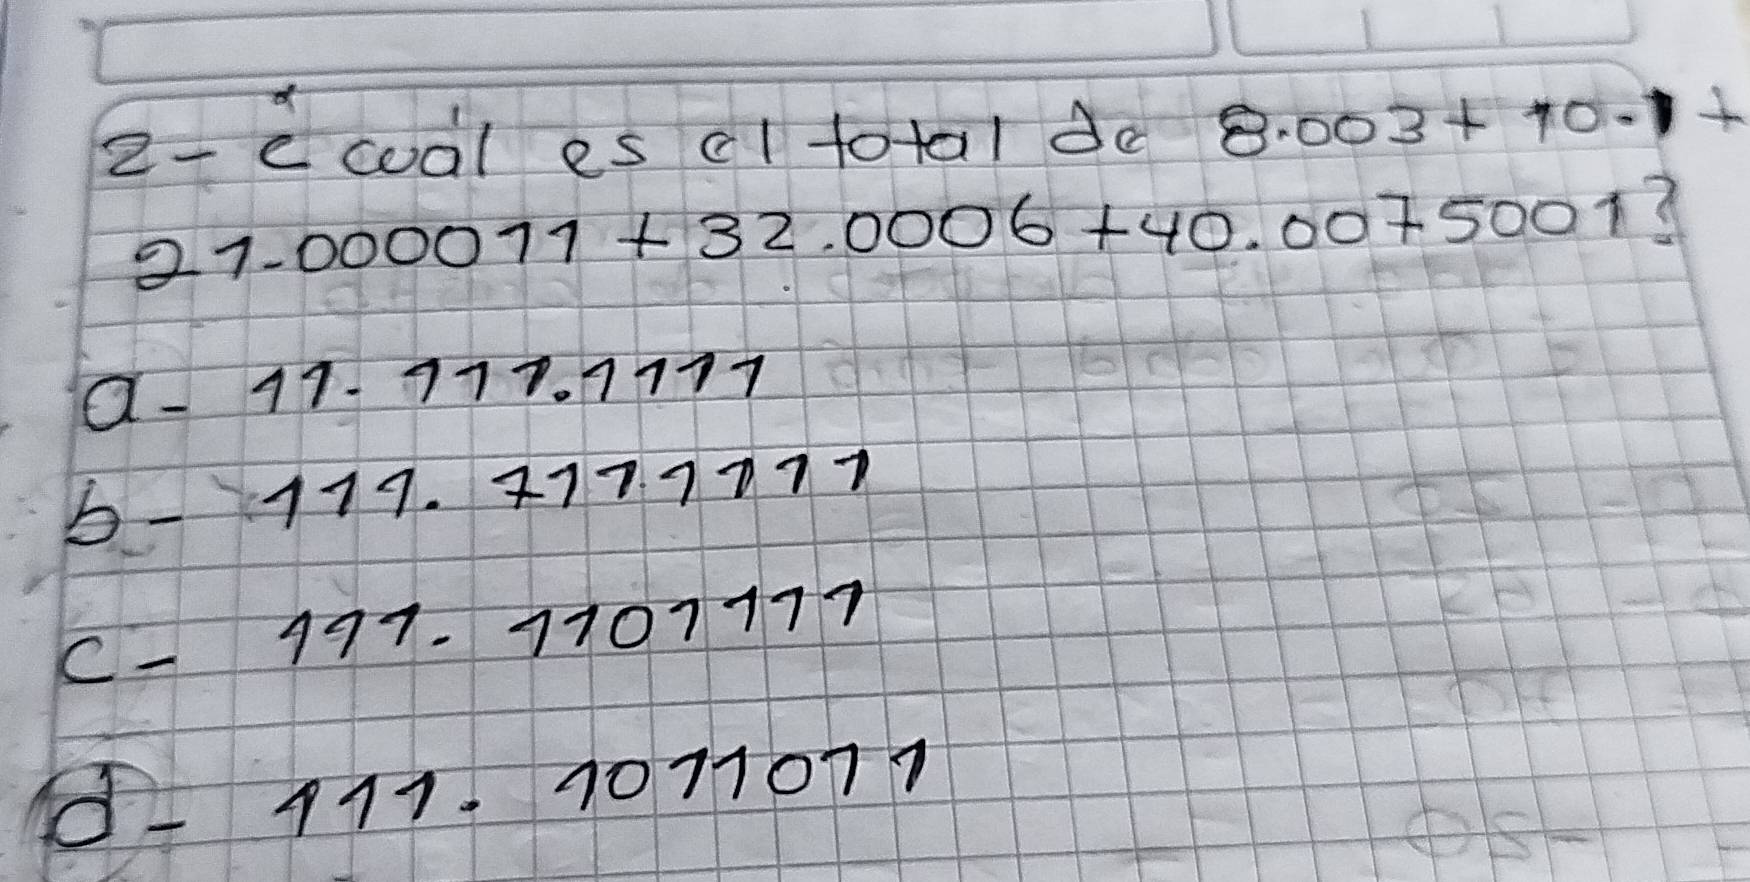 2- ¿ cuál es el total de 8.003 + 10.1 +
21.000011 + 32.0006 + 40.0075001?
a- 11.111.1111
b- 111.7171111
c- 111.1101111
d- 111.1011011